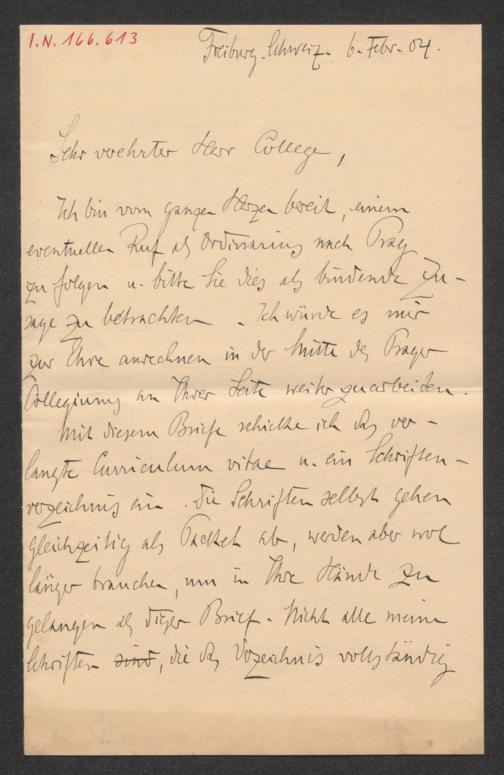 I.N. 166.613
Freiburg-Schweiz. 6. Febr. 04.
Sehr verehrter Herr College,
Ich bin vom ganzen Herzen bereit, einem
eventuellen Ruf als Ordinarius nach Prag
zu folgen u. bitte Sie dies als bindende Zu-
sage zu betrachten. Ich würde es mir
zur Ehre anrechnen in der Mitte des Prager
Collegiums an Ihrer Seite weiter zu arbeiten.
Mit diesem Briefe schicke ich das ver-
langte Curriculum vitae u. ein Schriften-
verzeichnis ein. Die Schriften selbst gehen
gleichzeitig als Packet ab, werden aber wol
länger brauchen, um in Ihre Hände zu
gelangen als dieser Brief. Nicht alle meine
Schriften sind, die das Verzeichnis vollständig